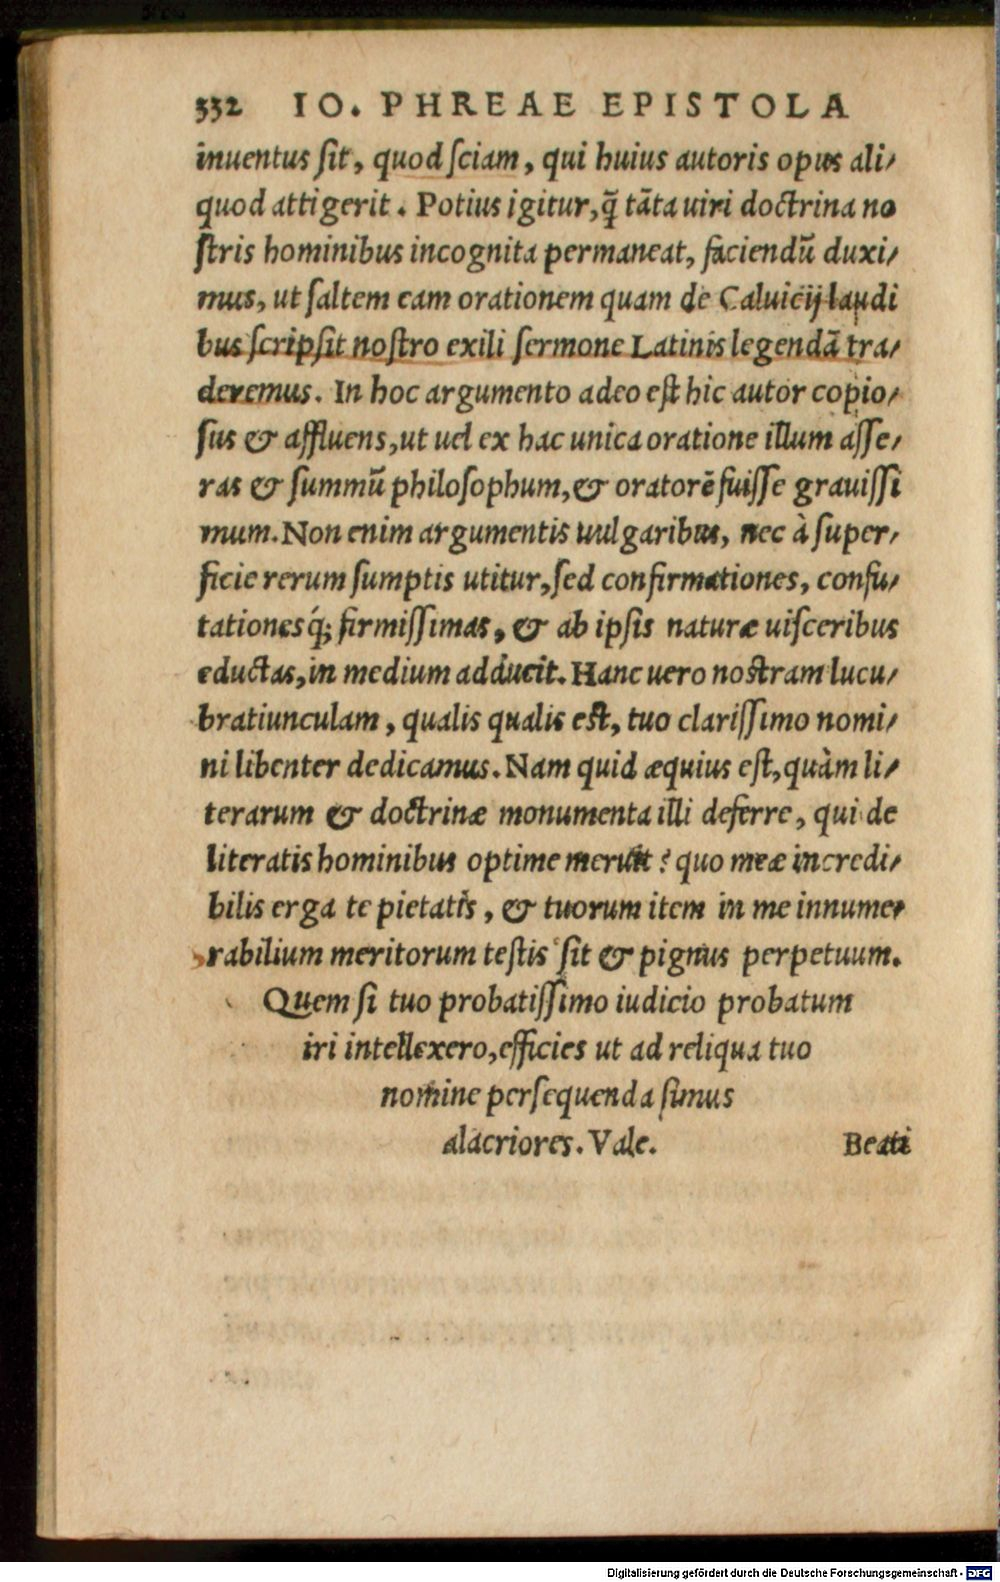 332 IO. PHREAE EPISTOLA
inuentus ſit, quod ſciam, qui huius autoris opus ali/
quod attigerit. Potius igitur, q̃ tãta uiri doctrina no
ſtris hominibus incognita permaneat, faciendũ duxi/
mus, ut ſaltem eam orationem quam de Caluicij laudi
bus ſcripſit noſtro exili ſermone Latinis legendã tra/
deremus. In hoc argumento adeo eſt hic autor copio/
ſus & affluens, ut uel ex hac unica oratione illum aſſe/
ras & ſummũ philoſophum, & oratorẽ fuiſſe grauiſſi
mum. Non enim argumentis uulgaribus, nec à ſuper/
ficie rerum ſumptis utitur, ſed confirmationes, confu/
tationesq́; firmiſſimas, & ab ipſis naturæ uiſceribus
eductas, in medium adducit. Hanc uero noſtram lucu/
bratiunculam, qualis qualis eſt, tuo clariſſimo nomi/
ni libenter dedicamus. Nam quid æquius eſt, quàm li/
terarum & doctrinæ monumenta illi deferre, qui de
literatis hominibus optime meruit? quo meæ incredi/
bilis erga te pietatis, & tuorum item in me innume/
rabilium meritorum teſtis ſit & pignus perpetuum.
Quem ſi tuo probatiſſimo iudicio probatum
iri intellexero, efficies ut ad reliqua tuo
nomine perſequenda ſimus
alacriores. Vale. Beati
Digitalisierung gefördert durch die Deutsche Forschungsgemeinschaft - DFG